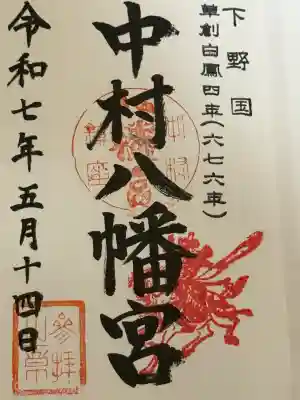 下野国
草創白鳳四年(六七六年)
中村八幡宮
令和七年五月十四日
参拝